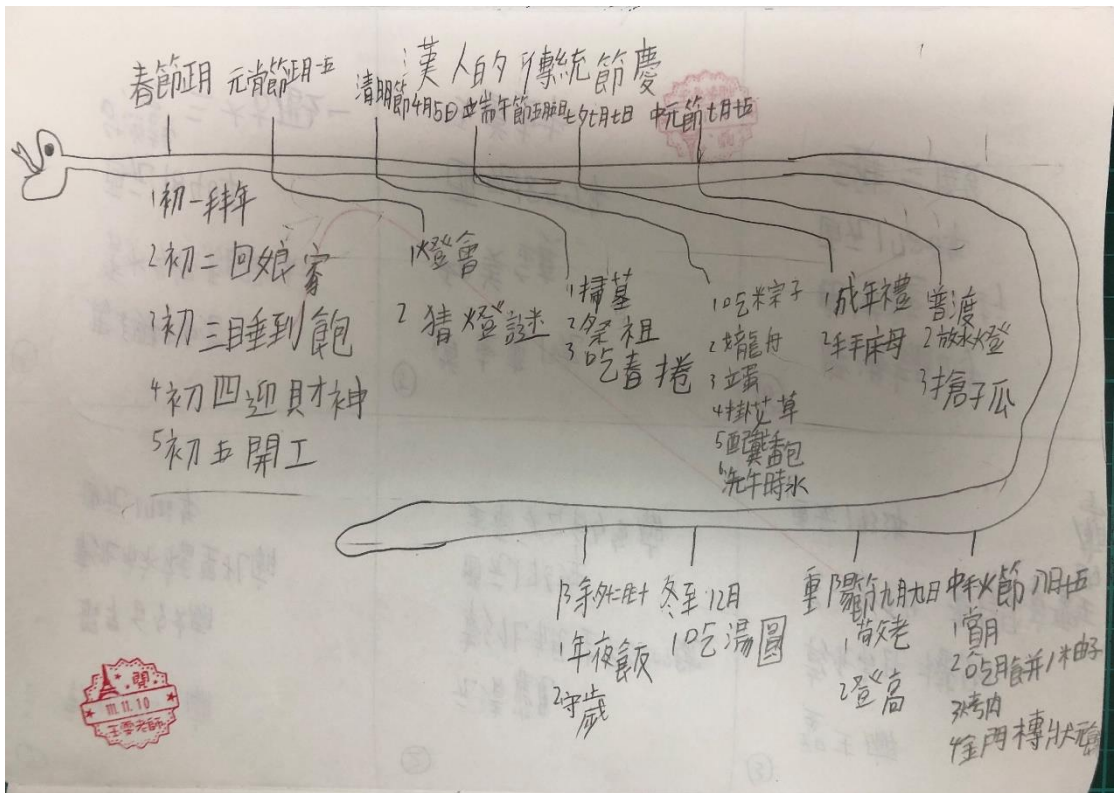 漢人的傳統節慶
春節正月
1初一拜年
2初二回娘家
3初三睡到飽
4初四迎財神
5初五開工
元宵節正月十五
1燈會
2猜燈謎
清明節4月5日
1掃墓
2祭祖
3吃春捲
端午節五月五日
1吃粽子
2 龍舟
3立蛋
4掛艾草
5配戴香包
6洗午時水
七夕七月七日
1成年禮
2拜床母
中元節七月十五
普渡
2放水燈
3搶孤
中秋節八月十五
1賞月
2吃月餅、柚子
3烤肉
4金門摶狀元
重陽節九月九日
1敬老
2登高
冬至12月
1吃湯圓
除夕
1年夜飯
2守歲
閱
111.11.10
老師